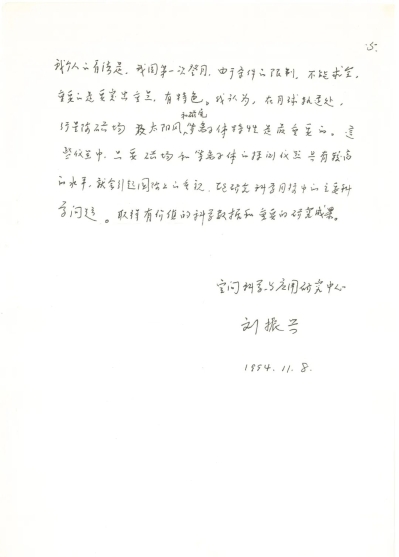 5.
我个人的看法是，我国第一次登月，由于条件的限制，不能求全，
重要的是要突出重点，有特色。我认为，在月球轨道处，
行星际磁场及太阳风和磁尾等离子体特性是最重要的。这
些仪器中，只要磁场和等离子体的探测仪器具有较高
的水平，就会引起国际上的重视，能研究科学目标中的主要科
学问题。取得有价值的科学数据和重要的研究成果。
空间科学与应用研究中心
刘振兴
1994.11.8.